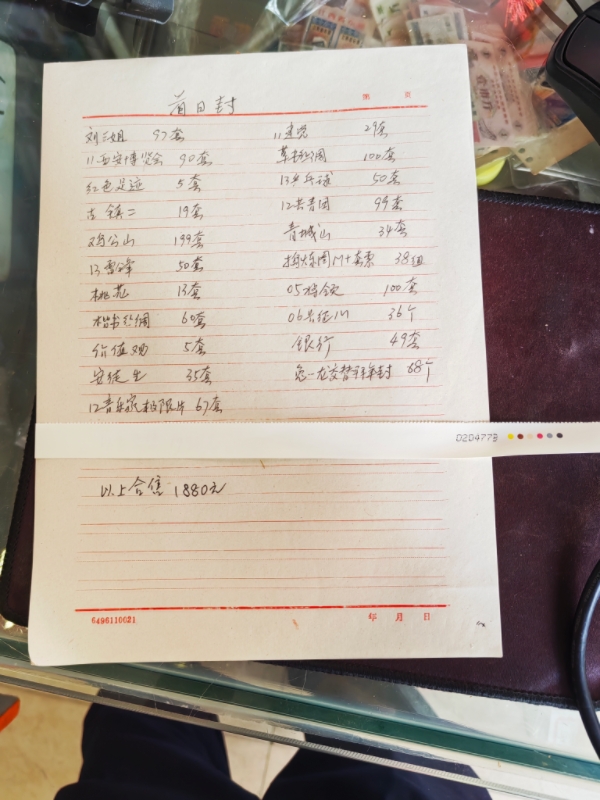 首日封
第 页
刘三姐 97套 11建党 29套
11西安博览会 90套 草书诗词 100套
红色足迹 5套 13乒乓球 50套
古镇二 19套 12共青团 99套
鸡公山 199套 青城山 34套
13雷锋 50套 M+套票 38组
桃花 13套 05 100套
楷书 60套 06长征 36个
5套 银行 49套
安徒生 35套 兔—龙交替 封 88个
12音乐家极限片 67套
D204773
以上合售:1880元
6496110021 年 月 日